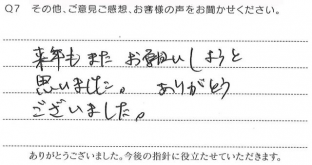 Q7 その他、ご意見ご感想、お客様の声をお聞かせください。
来年も また お願いしようと
思いました。 ありがとう
ございました。
ありがとうございました。今後の指針に役立たせていただきます。